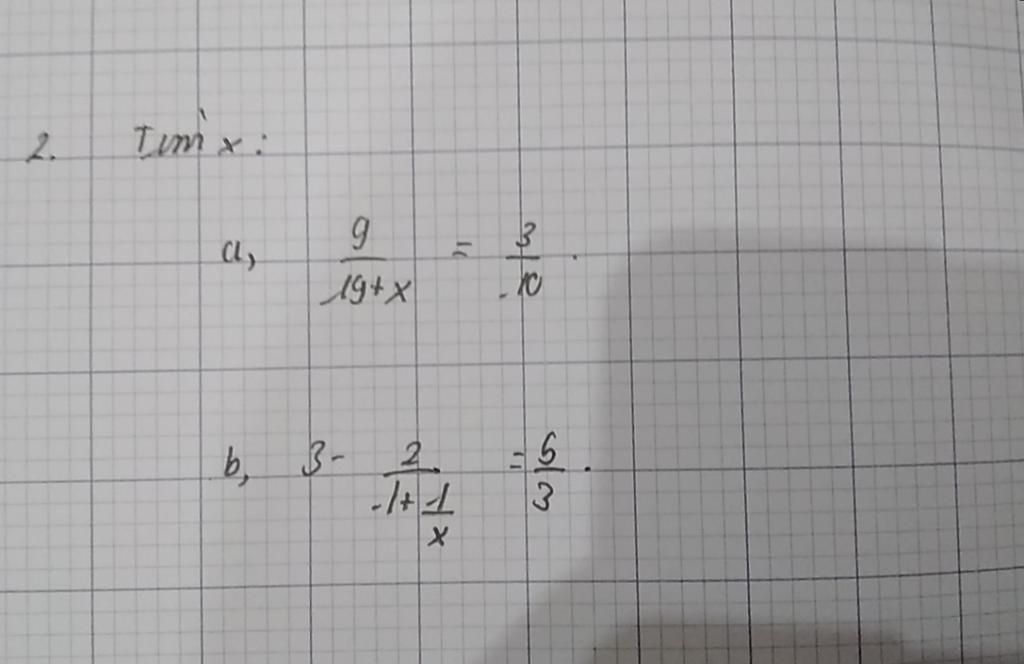 2. Tìm x:
a, 9/(19+x) = 3/10 .
b, 3 - 2/(1+1/x) = 5/3 .